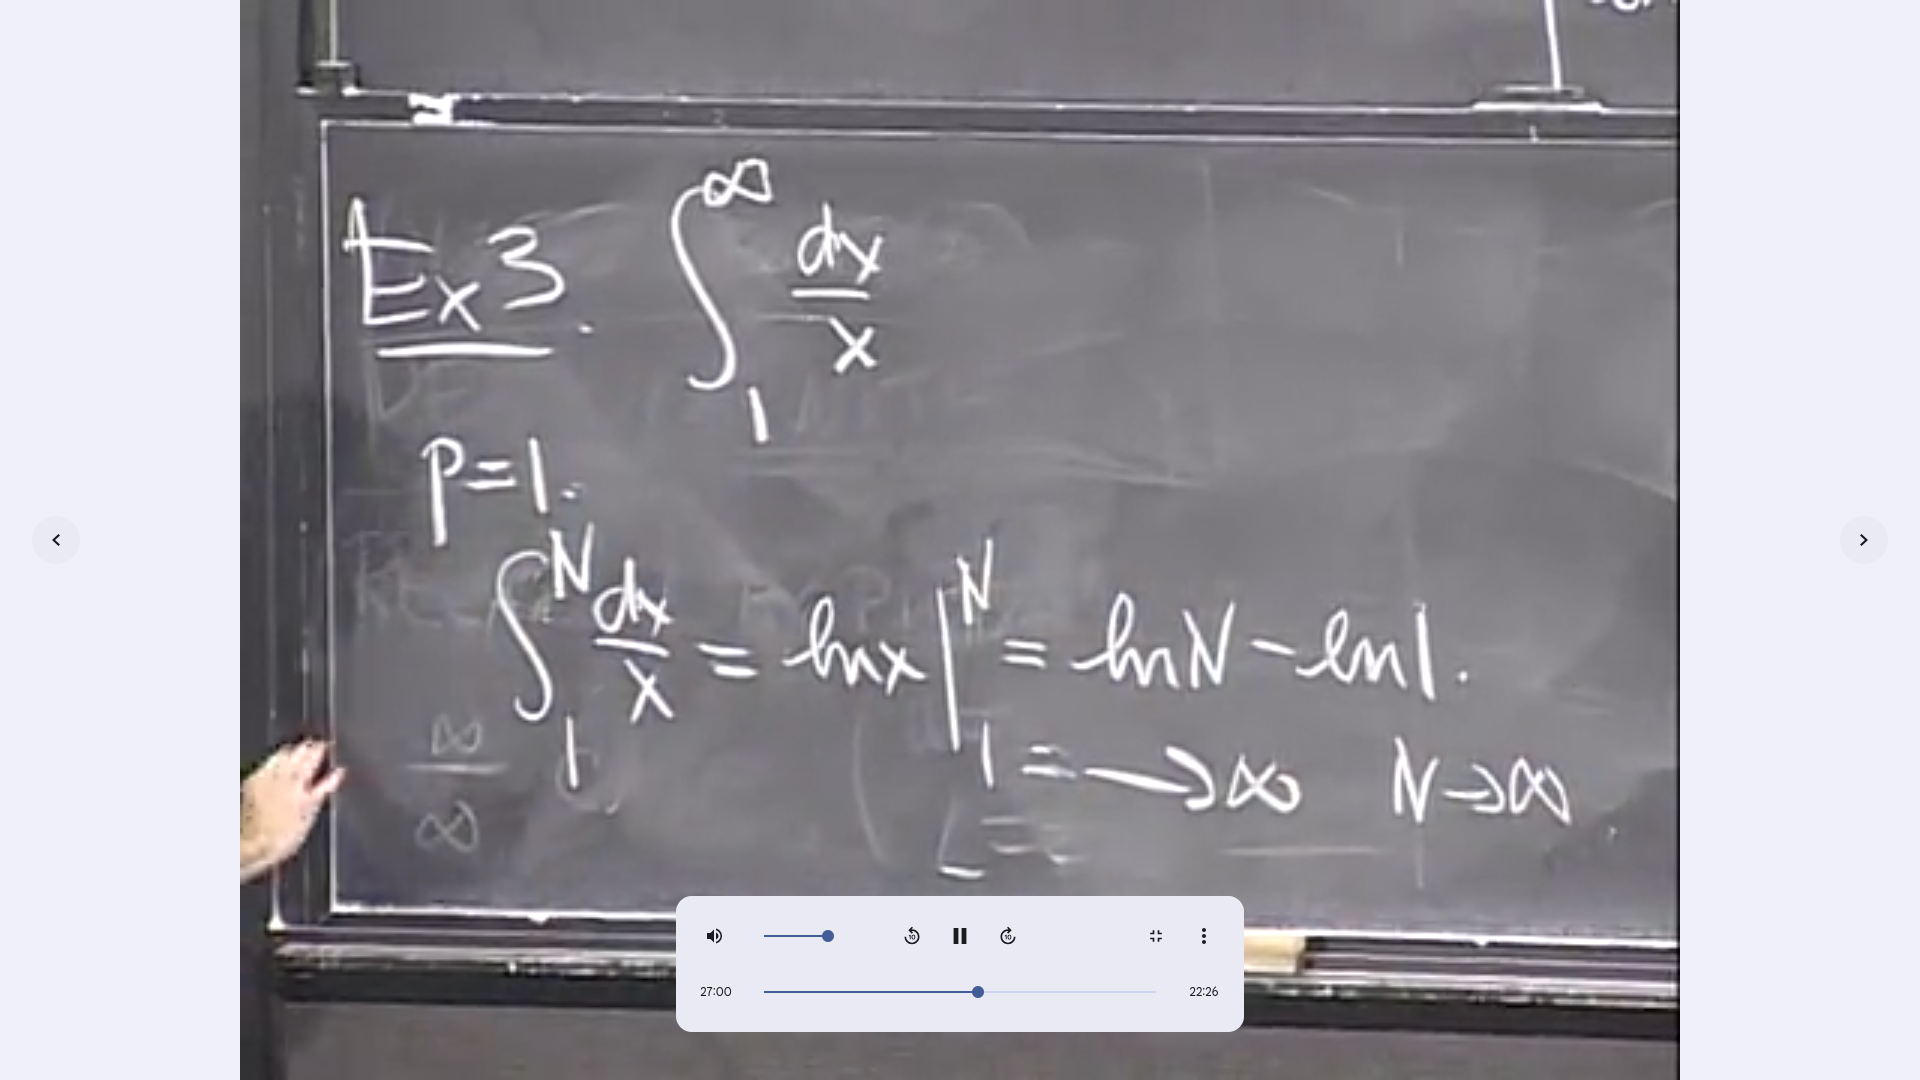 Ex 3. ∫₁^∞ dx/x
p=1.
∫₁^N dx/x = ln x |₁^N = ln N - ln 1.
= → ∞ N → ∞
∞/∞
27:00 22:26